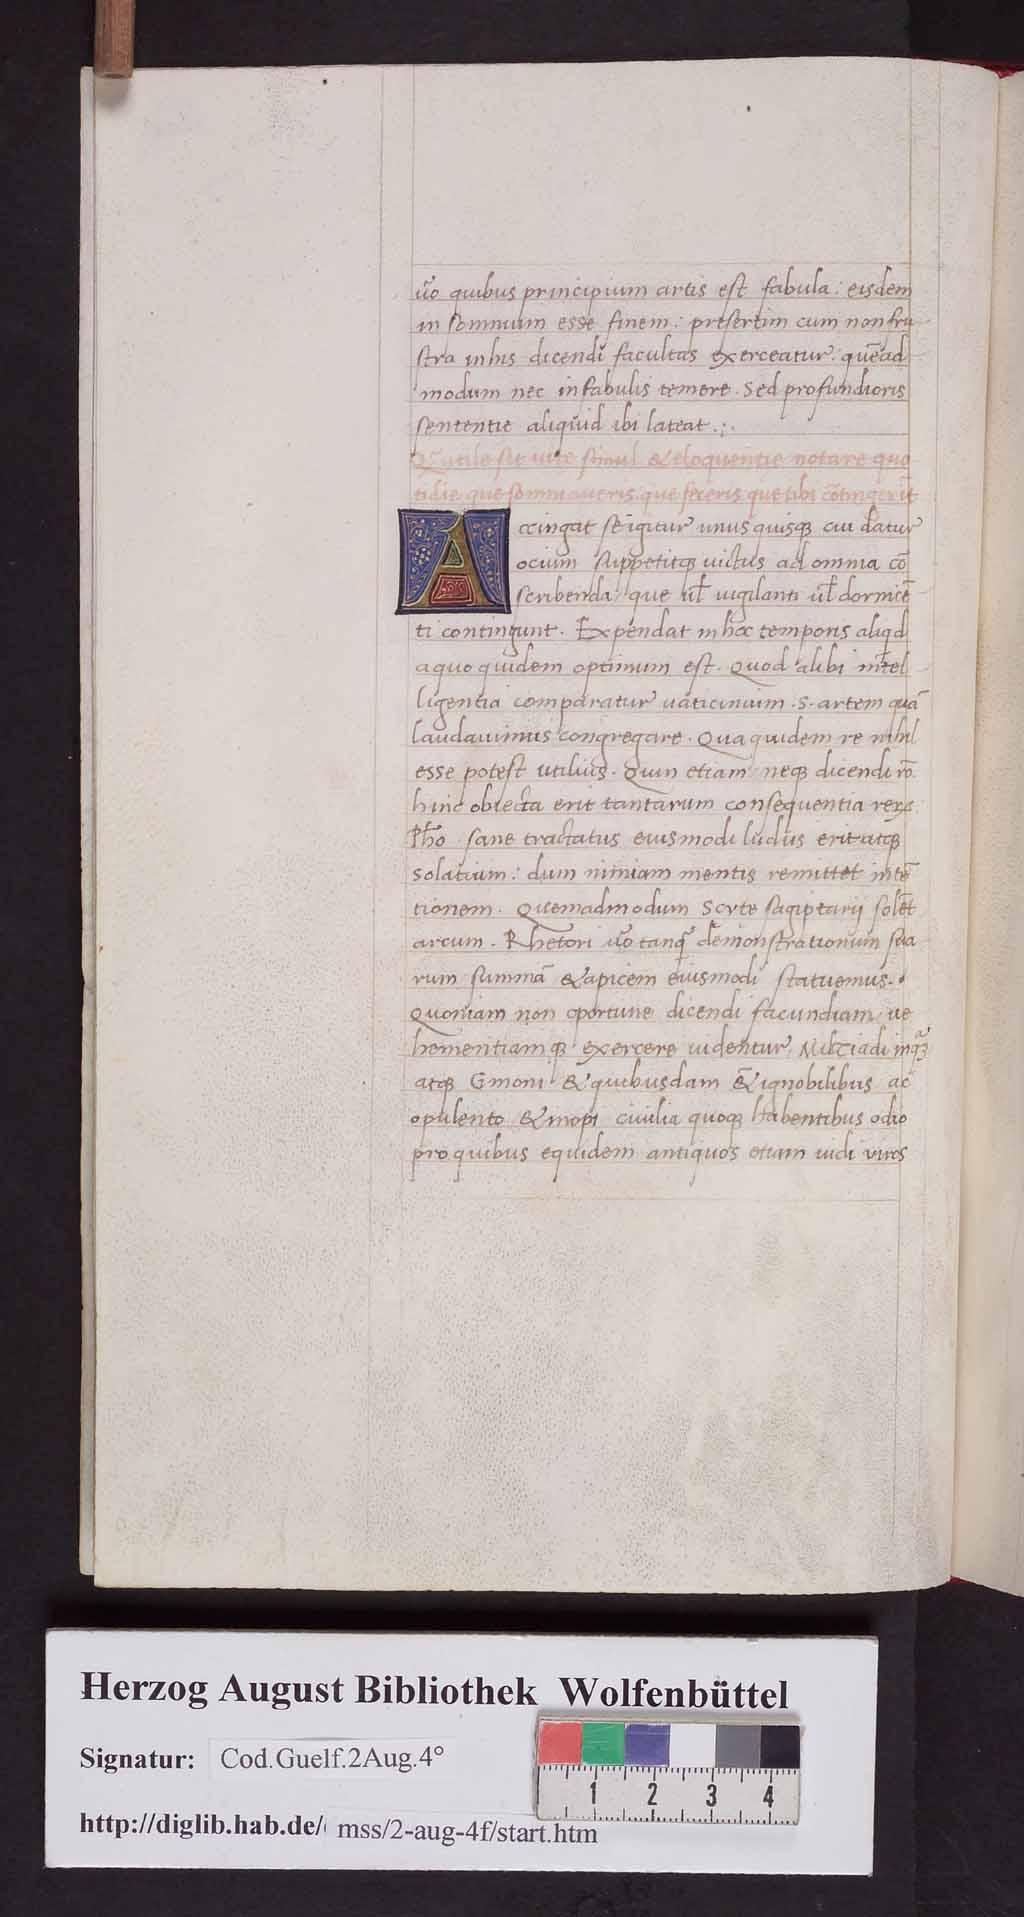 ũo quibus principium artis est fabula: eisdem
in somnium esse finem: presertim cum non fru
stra in his dicendi facultas exerceatur: quẽad
modum nec in fabulis temere. Sed profundioris
sententie aliquid ibi lateat.;.
Q̃ utile sit uite simul & eloquentie notare quo
tidie que somniaueris que feceris que tibi cõtingerĩt
Accingat se igitur unus quisq; cui datur
ocium suppetitq; uictus ad omnia cõ
scribenda: que ul̃ uigilanti ul̃ dormiẽ
ti contingunt. Expendat in hoc temporis aliqd
a quo quidem optimum est. Quod alibi intel
ligentia comparatur uaticinium .s. artem quã
laudauimus congregare. Qua quidem re nihil
esse potest utilius. Quin etiam neq; dicendi rõ
hinc obiecta erit tantarum consequentia rerꝝ.
Pho sane tractatus eiusmodi ludus erit atq;
solatium: dum nimiam mentis remittet intẽ
tionem. Quemadmodum Scyte sagiptarij solẽt
arcum. Rhetori ũo tanq̃ demonstrationum sua
rum summã & apicem eiusmodi statuemus.
Quoniam non oportune dicendi facundiam ue
hementiamq; exercere uidentur, Milciadi inq̃
atq; Cimoni & quibusdam & ignobilibus ac
opulento & inopi ciuilia quoq; habentibus odio
pro quibus equidem antiquos etiam uidi viros
Herzog August Bibliothek Wolfenbüttel
Signatur: Cod.Guelf.2Aug.4°
http://diglib.hab.de/ mss/2-aug-4f/start.htm
1 2 3 4